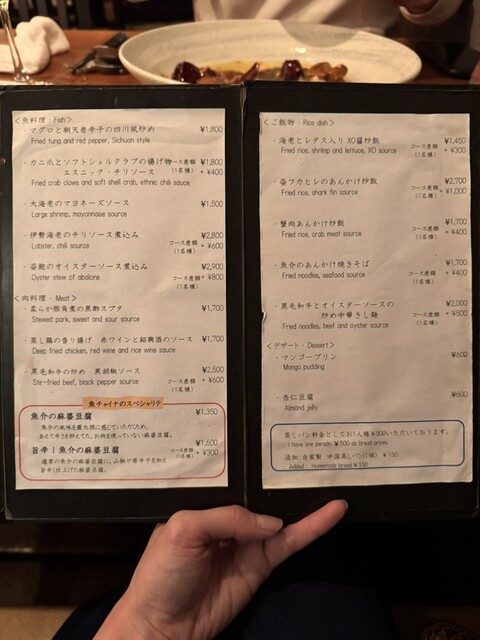 <魚料理・Fish>
・マグロと朝天唐辛子の四川風炒め ¥1,800
Fried tuna and red pepper, Sichuan style
・カニ爪とソフトシェルクラブの揚げ物 コース差額 ¥1,800
エスニック・チリソース (1名様) + ¥400
Fried crab claws and soft shell crab, ethnic chili sauce
・大海老のマヨネーズソース ¥1,500
Large shrimp, mayonnaise source
・伊勢海老のチリソース煮込み ¥2,800
Lobster, chili source コース差額 + ¥600
(1名様)
・姿鮑のオイスターソース煮込み ¥2,900
Oyster stew of abalone コース差額 + ¥800
(1名様)
<肉料理・Meat>
・柔らか豚角煮の黒酢スブタ ¥1,700
Stewed pork, sweet and sour source
・蒸し鶏の香り揚げ 赤ワインと紹興酒のソース ¥1,700
Deep fried chicken, red wine and rice wine source
・黒毛和牛の炒め 黒胡椒ソース ¥2,500
Stir-fried beef, black pepper source コース差額 + ¥600
(1名様)
魚チャイナのスペシャリテ
魚介の麻婆豆腐 ¥1,350
魚介の風味を最大限に感じていただくため、
あえて辛さを抑えてた、お肉を使っていない麻婆豆腐。
旨辛!魚介の麻婆豆腐 ¥1,600
コース差額 + ¥300
(1名様)
通常の魚介の麻婆豆腐に、山椒や唐辛子を加え
旨辛に仕上げた麻婆豆腐。
<ご飯物・Rice dish>
・海老とレタス入り XO醤炒飯 ¥1,450
Fried rice, shrimp and lettuce, XO source コース差額 + ¥300
(1名様)
・姿フカヒレのあんかけ炒飯 ¥2,700
Fried rice, shark fin source コース差額 + ¥1,000
(1名様)
・蟹肉あんかけ炒飯 ¥1,700
Fried rice, crab meat source コース差額 + ¥400
(1名様)
・魚介のあんかけ焼きそば ¥1,700
Fried noodles, seafood source コース差額 + ¥400
(1名様)
・黒毛和牛とオイスターソースの ¥2,000
炒め中華きし麺 コース差額 + ¥500
(1名様)
Fried noodles, beef and oyster source
<デザート・Dessert>
・マンゴープリン ¥600
Mango pudding
・杏仁豆腐 ¥600
Almond jelly
蒸しパン料金としてお1人様 ¥500いただいております。
I have one person ¥500 as bread prices.
追加:自家製 中国蒸しパン(1個) ¥150
Added: Homemade bread ¥150